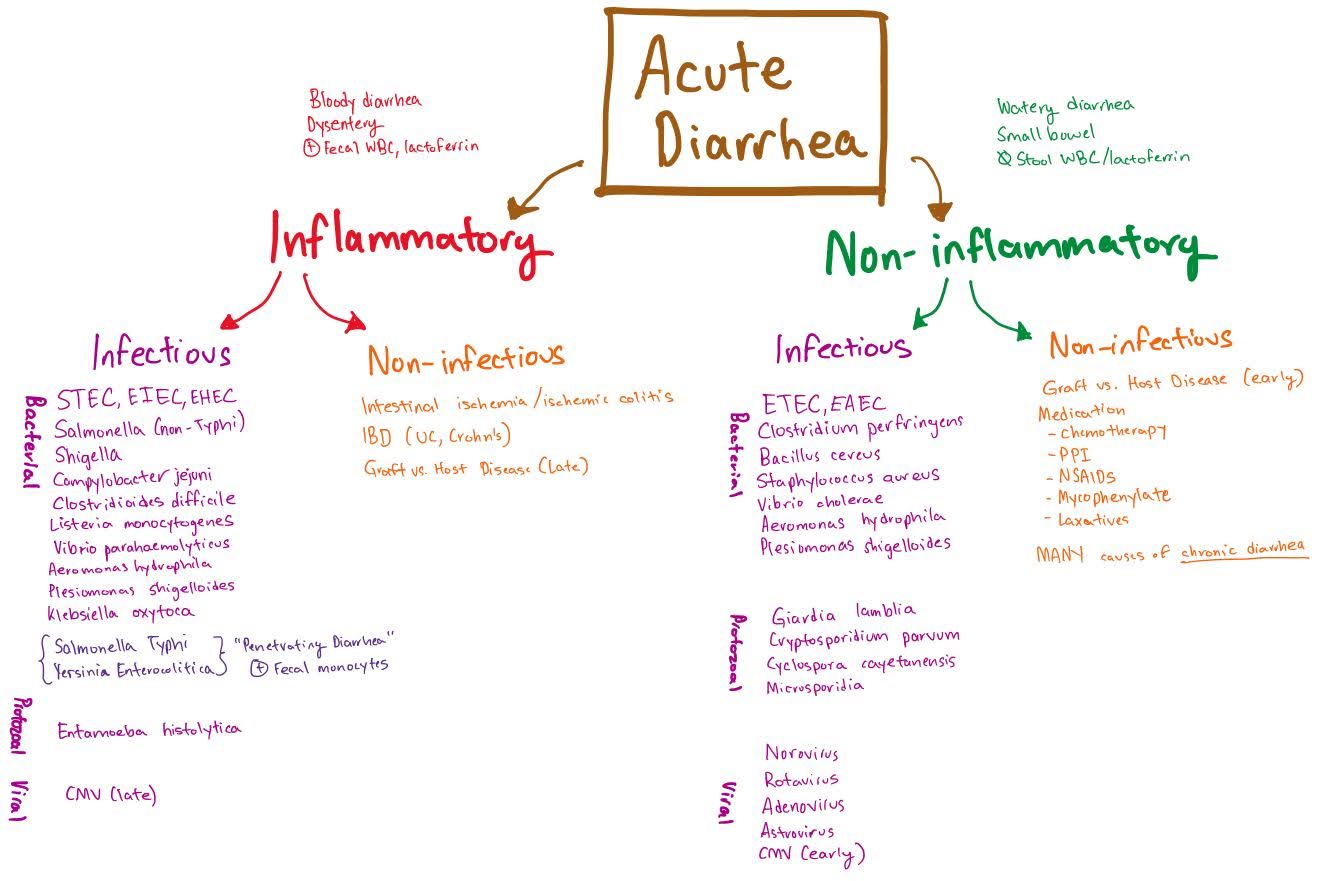 Acute
Diarrhea
Bloody diarrhea
Dysentery
⊕ Fecal WBC, lactoferrin
Inflammatory
Infectious
Bacterial
STEC, EIEC, EHEC
Salmonella (non-Typhi)
Shigella
Campylobacter jejuni
Clostridioides difficile
Listeria monocytogenes
Vibrio parahaemolyticus
Aeromonas hydrophila
Plesiomonas shigelloides
Klebsiella oxytoca
{ Salmonella Typhi } "Penetrating Diarrhea"
{ Yersinia Enterocolitica } ⊕ Fecal monocytes
Protozoal
Entamoeba histolytica
Viral
CMV (late)
Non-infectious
Intestinal ischemia/ischemic colitis
IBD (UC, Crohn's)
Graft vs. Host Disease (Late)
Watery diarrhea
Small bowel
Ø Stool WBC/lactoferrin
Non-inflammatory
Infectious
Bacterial
ETEC, EAEC
Clostridium perfringens
Bacillus cereus
Staphylococcus aureus
Vibrio cholerae
Aeromonas hydrophila
Plesiomonas shigelloides
Protozoal
Giardia lamblia
Cryptosporidium parvum
Cyclospora cayetanensis
Microsporidia
Viral
Norovirus
Rotavirus
Adenovirus
Astrovirus
CMV (early)
Non-infectious
Graft vs. Host Disease (early)
Medication
- Chemotherapy
- PPI
- NSAIDs
- Mycophenylate
- Laxatives
MANY causes of chronic diarrhea